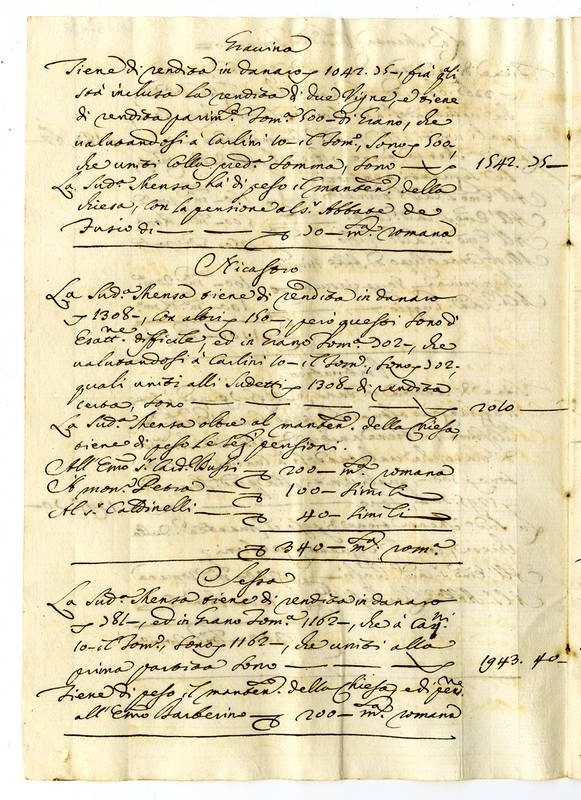 Gravina
Tiene di rendita in danaro 1042. 35–, frà q.li
stà inclusa la rendita di due Vigne, e tiene
di rendita parim.te Tom.a 500– di Grano, che
valutandosi à Carlini 10– il Tom.o, sono 500,
che uniti colla pred.a somma, sono — 1542. 35–
La Sud.a Mensa hà di peso il manten.o della
Chiesa, con la pensione al S.r Abbate de
di — — — 50– m.ta romana
Nicastro
La Sud.a Mensa tiene di rendita in danaro
1308–, con altri 150–, però questi sono d'
Esatt.ne difficile, ed in Grano Tom.a 702–, che
valutandosi à Carlini 10– il Tom.o, sono 702,
quali uniti alli Sudetti 1308– di rendita
certa, sono — — — — 2010 —
La Sud.a Mensa oltre al manten.o della Chiesa,
tiene di peso le seg.ti pensioni.
All'Emo S.r Card. — 200– m.ta romana
A mon.r Petra — 100– simili
Al S.r Caldinelli — 40– simili
340– m.ta rom.a
Sessa
La Sud.a Mensa tiene di rendita in danaro
781–, ed in Grano Tom.a 1162–, che à Car.ni
10– il Tom.o, sono 1162–, che uniti alla
prima partita sono — — — 1943. 40–
Tiene di peso, il manten.o della Chiesa, ed di pen.ne
all'Emo Barberino — 200– m.ta romana